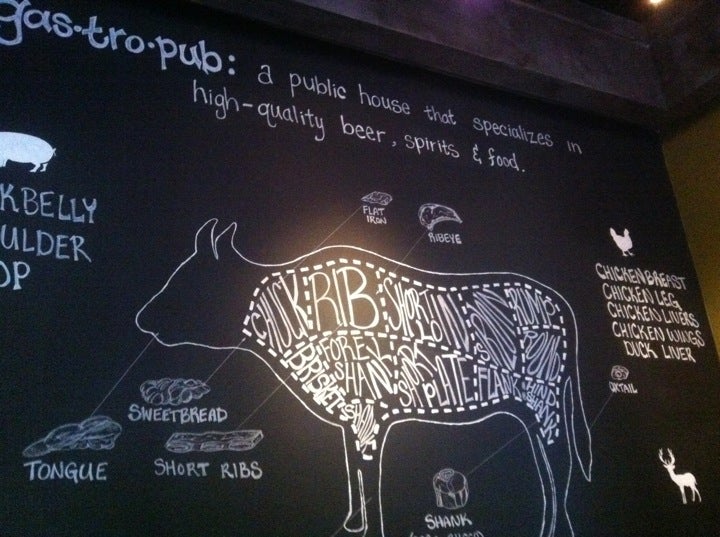 gas·tro·pub:
a public house that specializes in
high-quality beer, spirits & food.
KBELLY
ULDER
OP
FLAT
IRON
RIBEYE
CHUCK
RIB
SHORT LOIN
RUMP
ROUND
BRISKET
FORE
SHANK
PLATE
FLANK
HIND
SHANK
CHICKEN BREAST
CHICKEN LEG
CHICKEN LIVERS
CHICKEN WINGS
DUCK LIVER
OXTAIL
SWEETBREAD
TONGUE
SHORT RIBS
SHANK